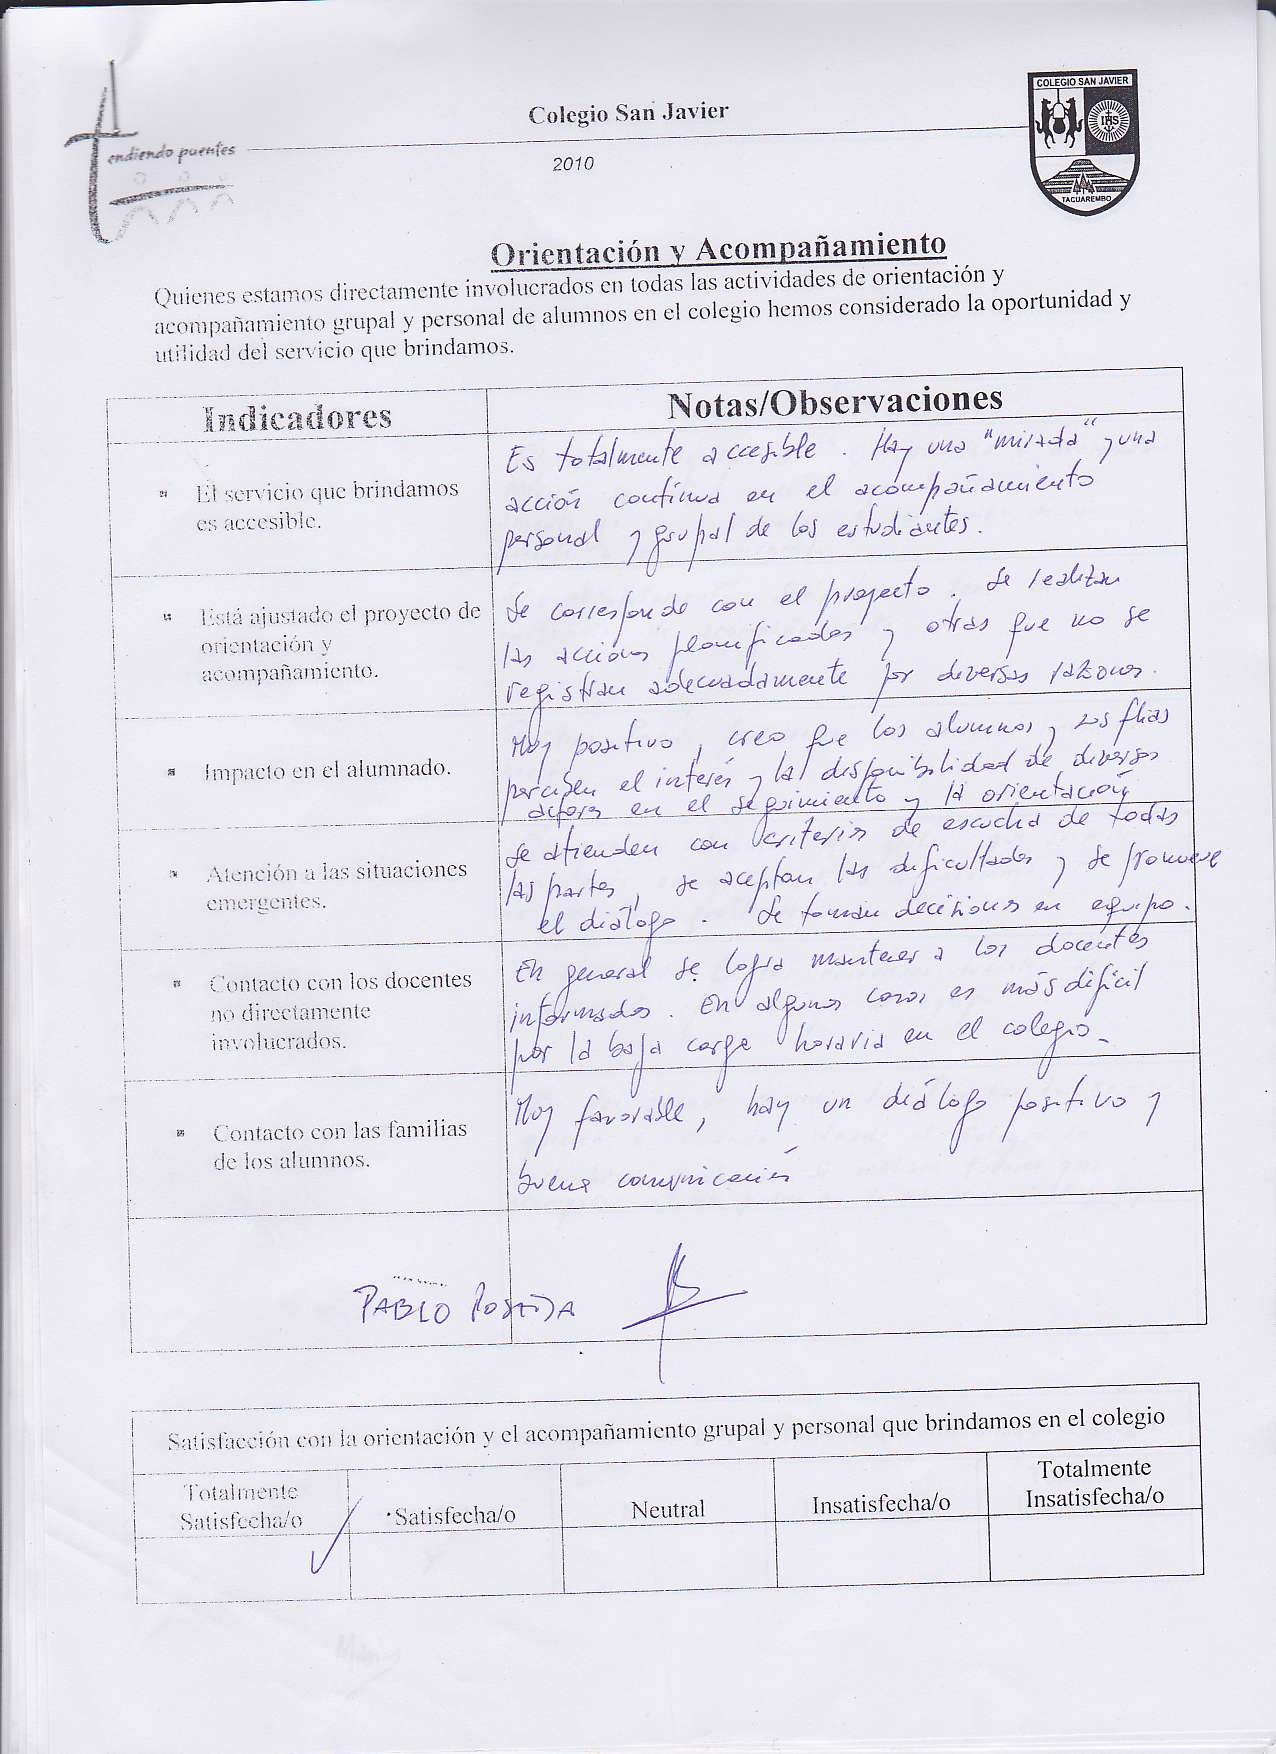 COLEGIO SAN JAVIER
Colegio San Javier
IHS
endiendo puentes
2010
TACUAREMBO
Orientación y Acompañamiento
Quienes estamos directamente involucrados en todas las actividades de orientación y
acompañamiento grupal y personal de alumnos en el colegio hemos considerado la oportunidad y
utilidad del servicio que brindamos.
Indicadores
Notas/Observaciones
El servicio que brindamos
es accesible.
Es totalmente accesible. Hay una "mirada" y una
acción continua en el acompañamiento
personal y grupal de los estudiantes.
Está ajustado el proyecto de
orientación y
acompañamiento.
Se corresponde con el proyecto. Se realizan
las acciones planificadas y otras que no se
registran adecuadamente por diversas razones.
Impacto en el alumnado.
Muy positivo, creo que los alumnos y sus flias
perciben el interés y la disponibilidad de diversos
actores en el seguimiento y la orientación
Atención a las situaciones
emergentes.
Se atienden con criterios de escucha de todas
las partes, se aceptan las dificultades y se promueve
el diálogo. Se toman decisiones en equipo.
Contacto con los docentes
no directamente
involucrados.
En general se logra mantener a los docentes
informados. En algunos casos es más difícil
por la baja carga horaria en el colegio.
Contacto con las familias
de los alumnos.
Muy favorable, hay un diálogo positivo y
buena comunicación
PABLO
Satisfacción con la orientación y el acompañamiento grupal y personal que brindamos en el colegio
Totalmente
Satisfecha/o
Satisfecha/o
Neutral
Insatisfecha/o
Totalmente
Insatisfecha/o